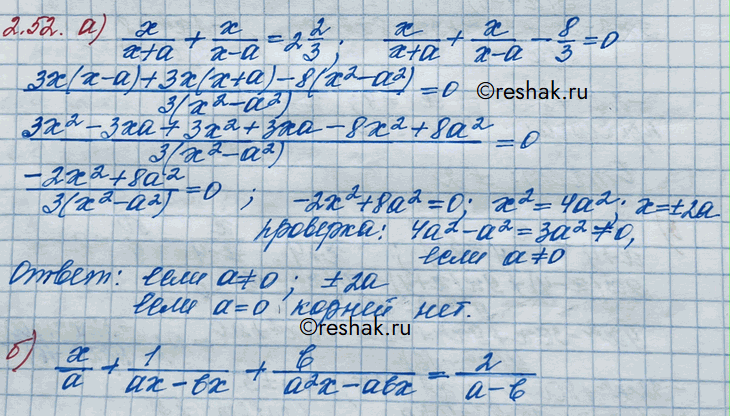 2.52. а) x/(x+a) + x/(x-a) = 2 2/3; x/(x+a) + x/(x-a) - 8/3 = 0
(3x(x-a)+3x(x+a)-8(x²-a²))/(3(x²-a²)) = 0 ©reshak.ru
(3x²-3xa+3x²+3xa-8x²+8a²)/(3(x²-a²)) = 0
(-2x²+8a²)/(3(x²-a²)) = 0; -2x²+8a²=0; x²=4a²; x=±2a
проверка: 4a²-a²=3a²≠0,
если a≠0
Ответ: если a≠0; ±2a
если a=0 корней нет.
©reshak.ru
б) x/a + 1/(ax-bx) + b/(a²x-abx) = 2/(a-b)